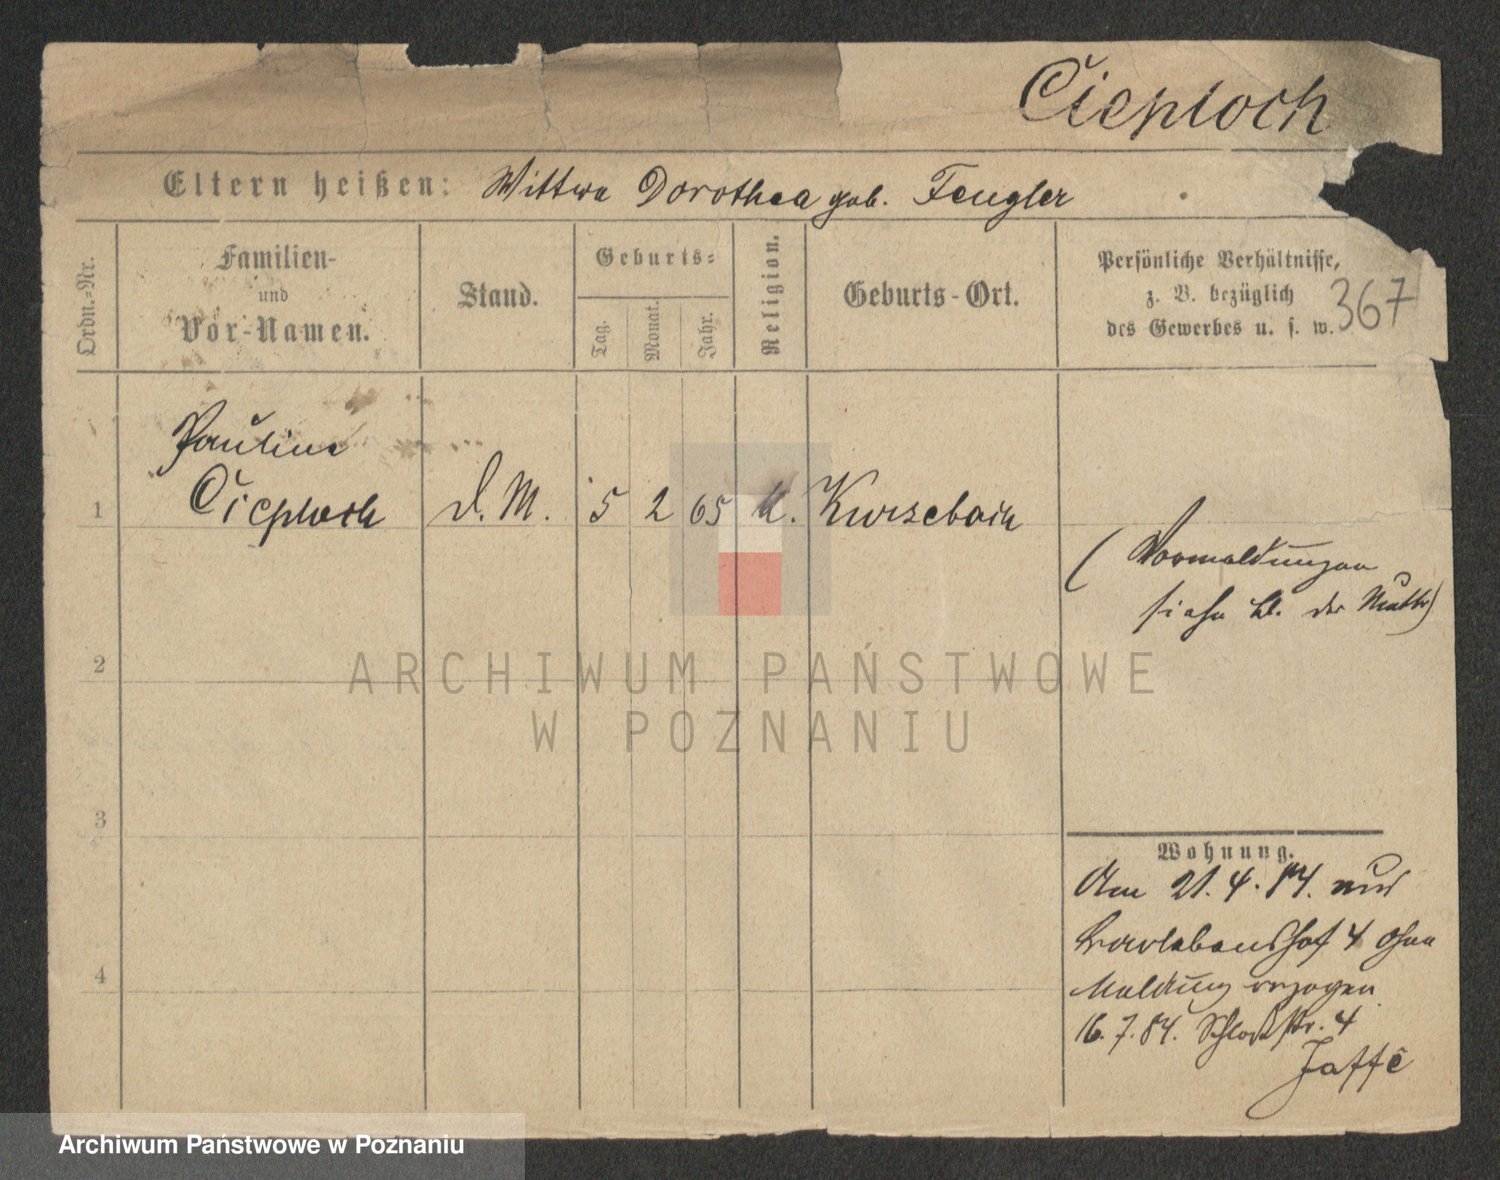 Cieploch
Eltern heißen: Wittwe Dorothea geb. Fengler
Ordn.-Nr.
Familien-
und
Vor-Namen.
Stand.
Geburts-
Tag.
Monat.
Jahr.
Religion.
Geburts-Ort.
Persönliche Verhältnisse,
z. B. bezüglich
des Gewerbes u. s. w.
367
Pauline
1 Cieploch d. M. 5 2 65 k. Kurzebain
(Vormeldungen
siehe bl. der Mutter)
2
3
4
Wohnung.
Am 21.4.84. aus
4 ohne
Meldung verzogen
16.7.84. Schloßstr. 4
Jaffé
ARCHIWUM PAŃSTWOWE
W POZNANIU
Archiwum Państwowe w Poznaniu